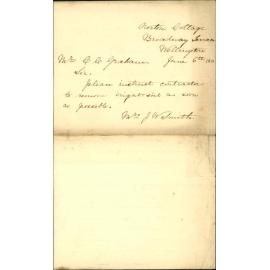 Norton Cottage
Broadway Terrace
Wellington
Mr C. C. Graham June 6th
Sir.
please instruct contractor
to remove nightsoil as soon
as possible.
Mrs J W Smith